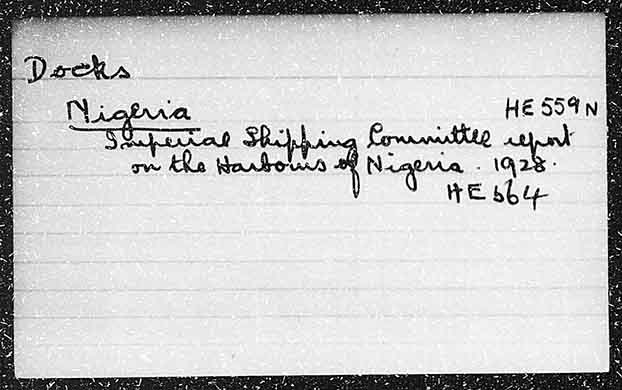 Docks
Nigeria HE 559 N
Imperial Shipping Committee report
on the Harbours of Nigeria. 1928.
HE 564